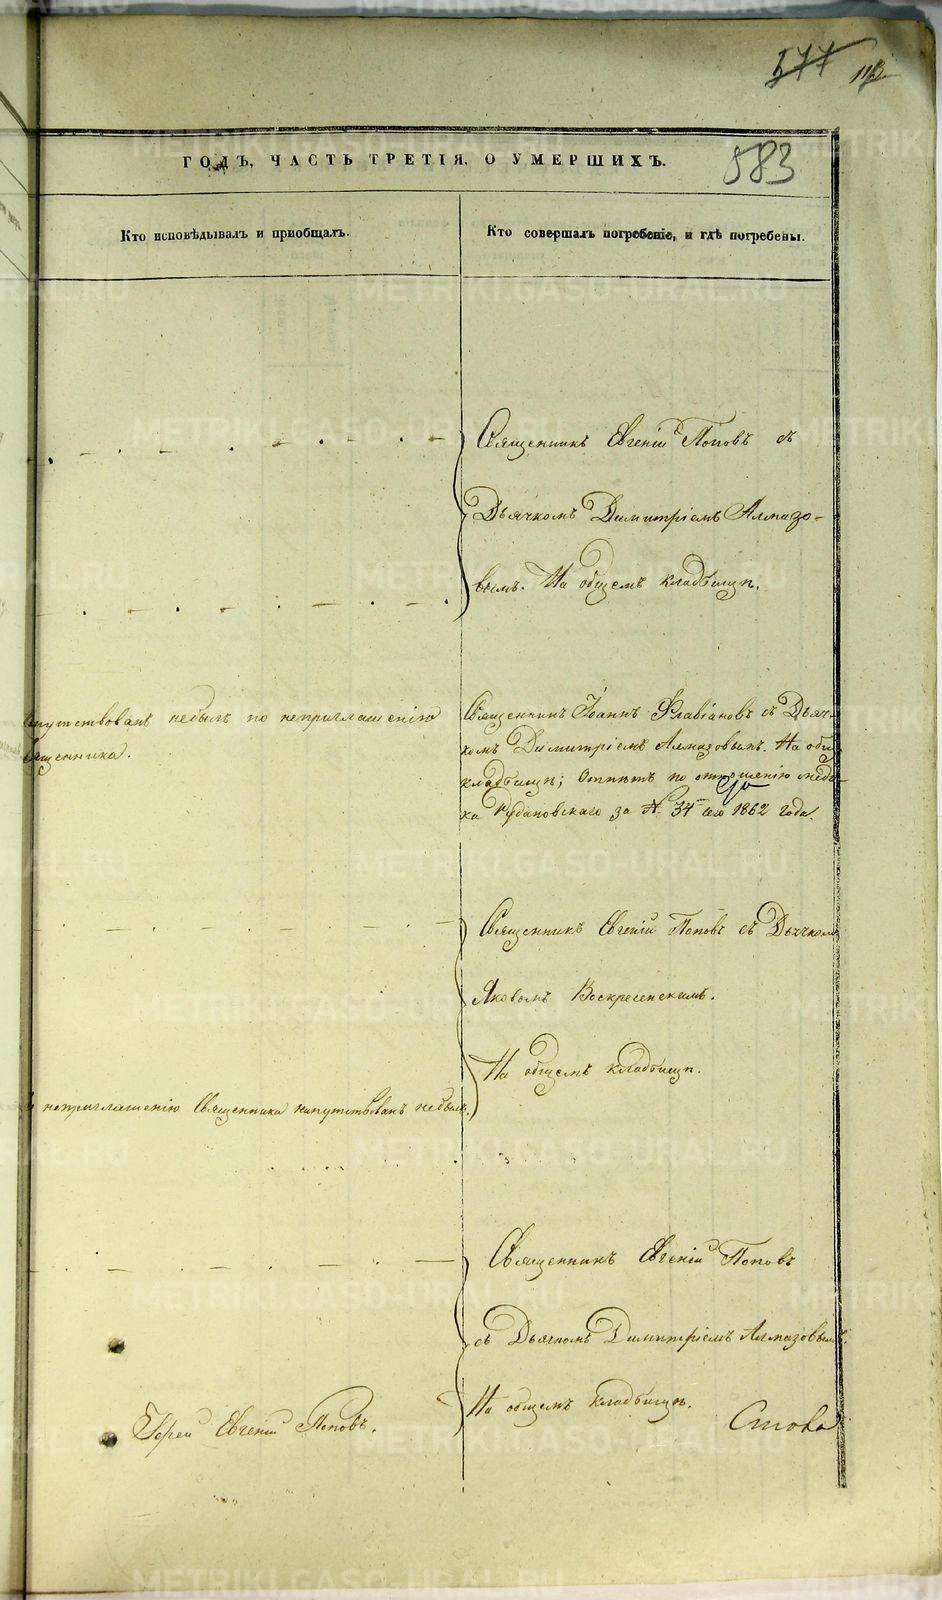 577
112
583
ГОДЪ, ЧАСТЬ ТРЕТІЯ, О УМЕРШИХЪ.
Кто исповѣдывалъ и пріобщалъ.
Кто совершалъ погребеніе, и гдѣ погребены.
Священникъ Евгеній Поповъ съ
Дьячкомъ Димитріемъ Алмазо-
вымъ. На общемъ кладбищѣ.
напутствованъ небылъ по неприглашенію
священника.
Священникъ Іоаннъ Флавіановъ съ Дьяч-
комъ Димитріемъ Алмазовымъ. На общ.
кладбищѣ; Отпѣтъ по отношенію меди-
ка Рудановскаго за № 34 1862 года.
Священникъ Евгеній Поповъ съ Дьячкомъ
Яковомъ Воскресенскимъ.
На общемъ кладбищѣ.
неприглашенію Священника напутствованъ небылъ.
Священникъ Евгеній Поповъ
съ Дьячкомъ Димитріемъ Алмазовымъ.
На общемъ кладбищѣ.
Іерей Евгеній Поповъ.
METRIKI.GASO-URAL.RU